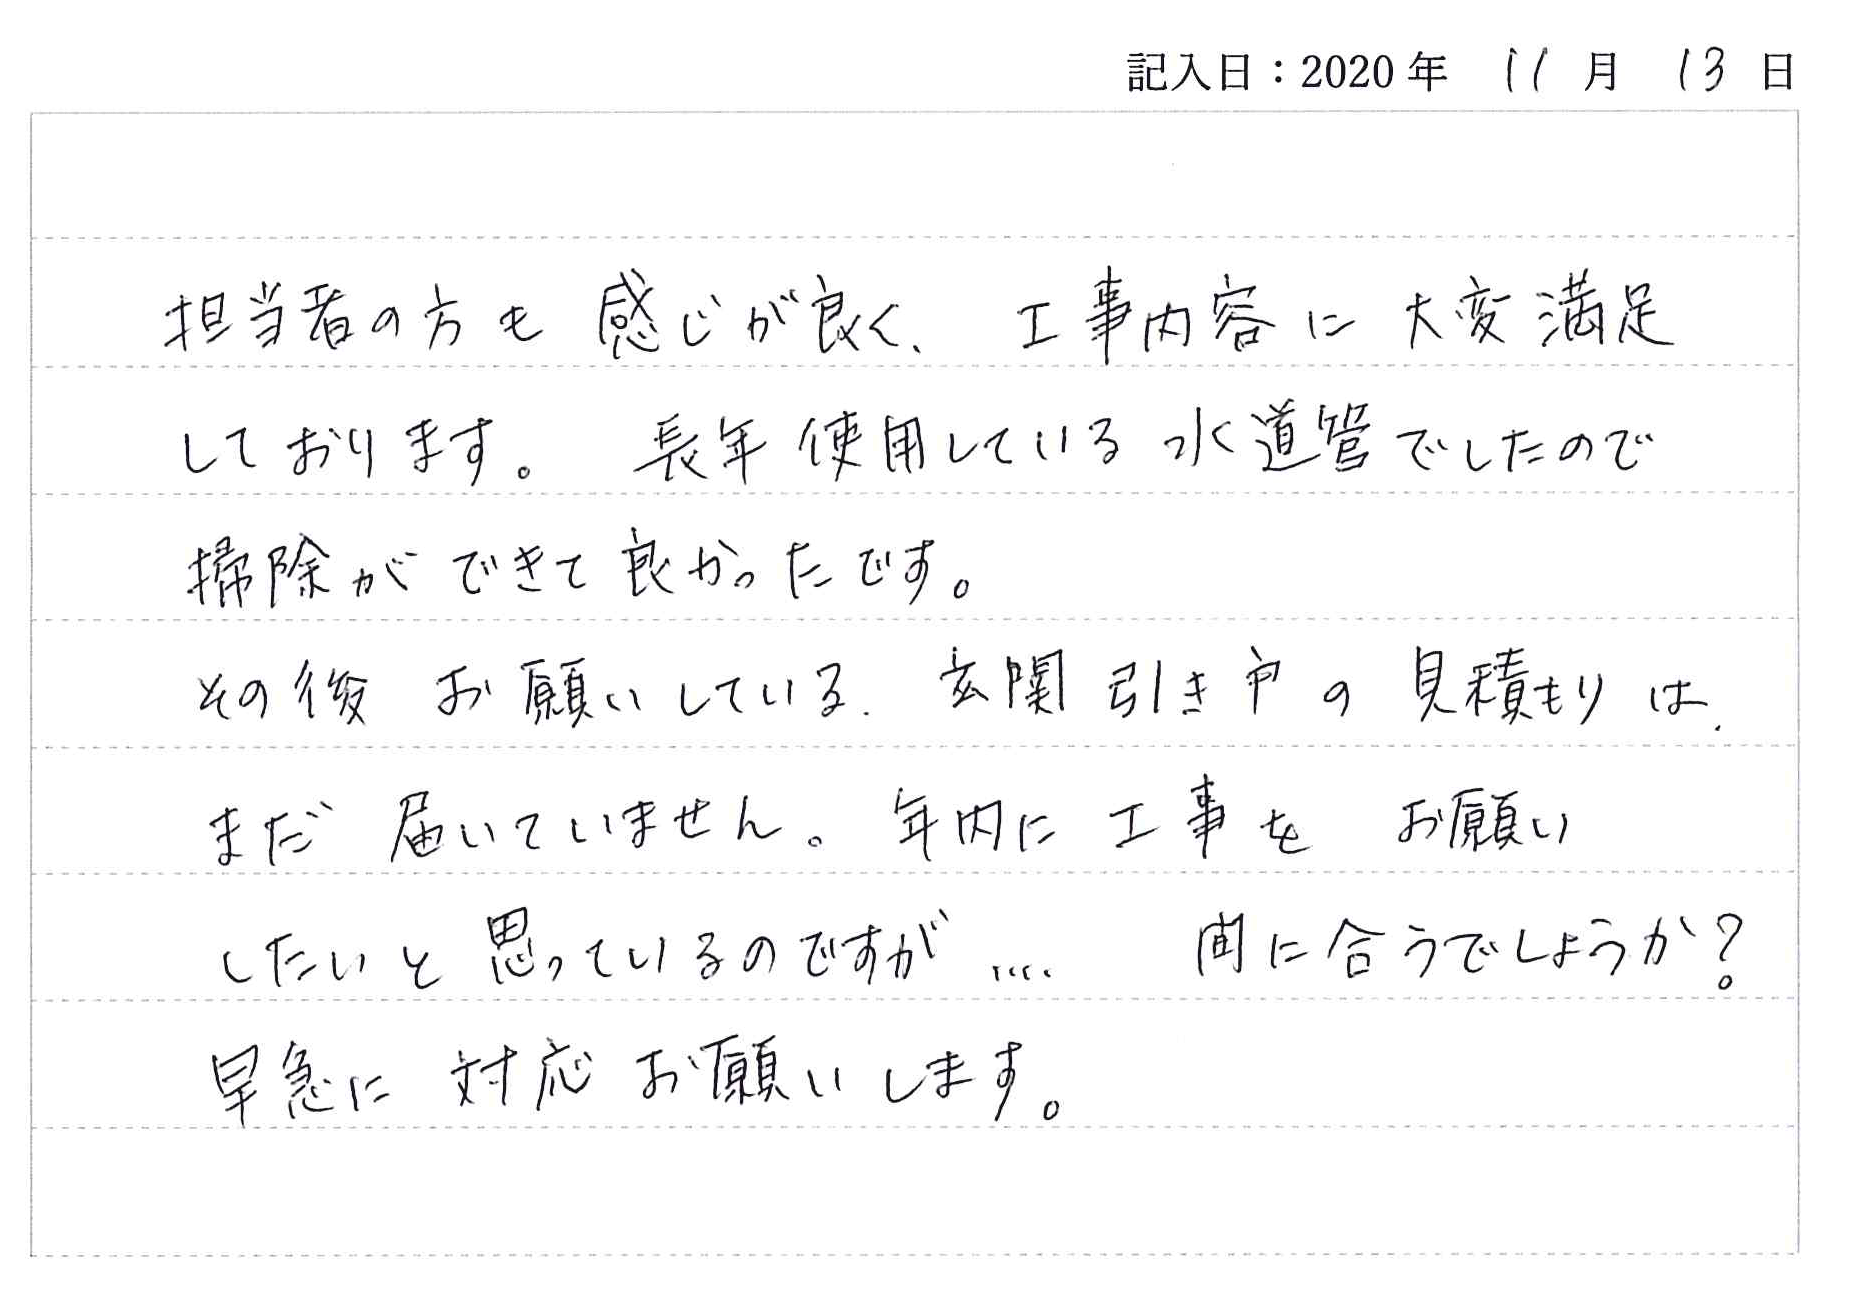 記入日：2020年 11月 13日
担当者の方も感じが良く、工事内容に大変満足
しております。長年使用している水道管でしたので
掃除ができて良かったです。
その後お願いしている、玄関引き戸の見積もりは、
まだ届いていません。年内に工事をお願い
したいと思っているのですが…. 間に合うでしょうか?
早急に対応お願いします。